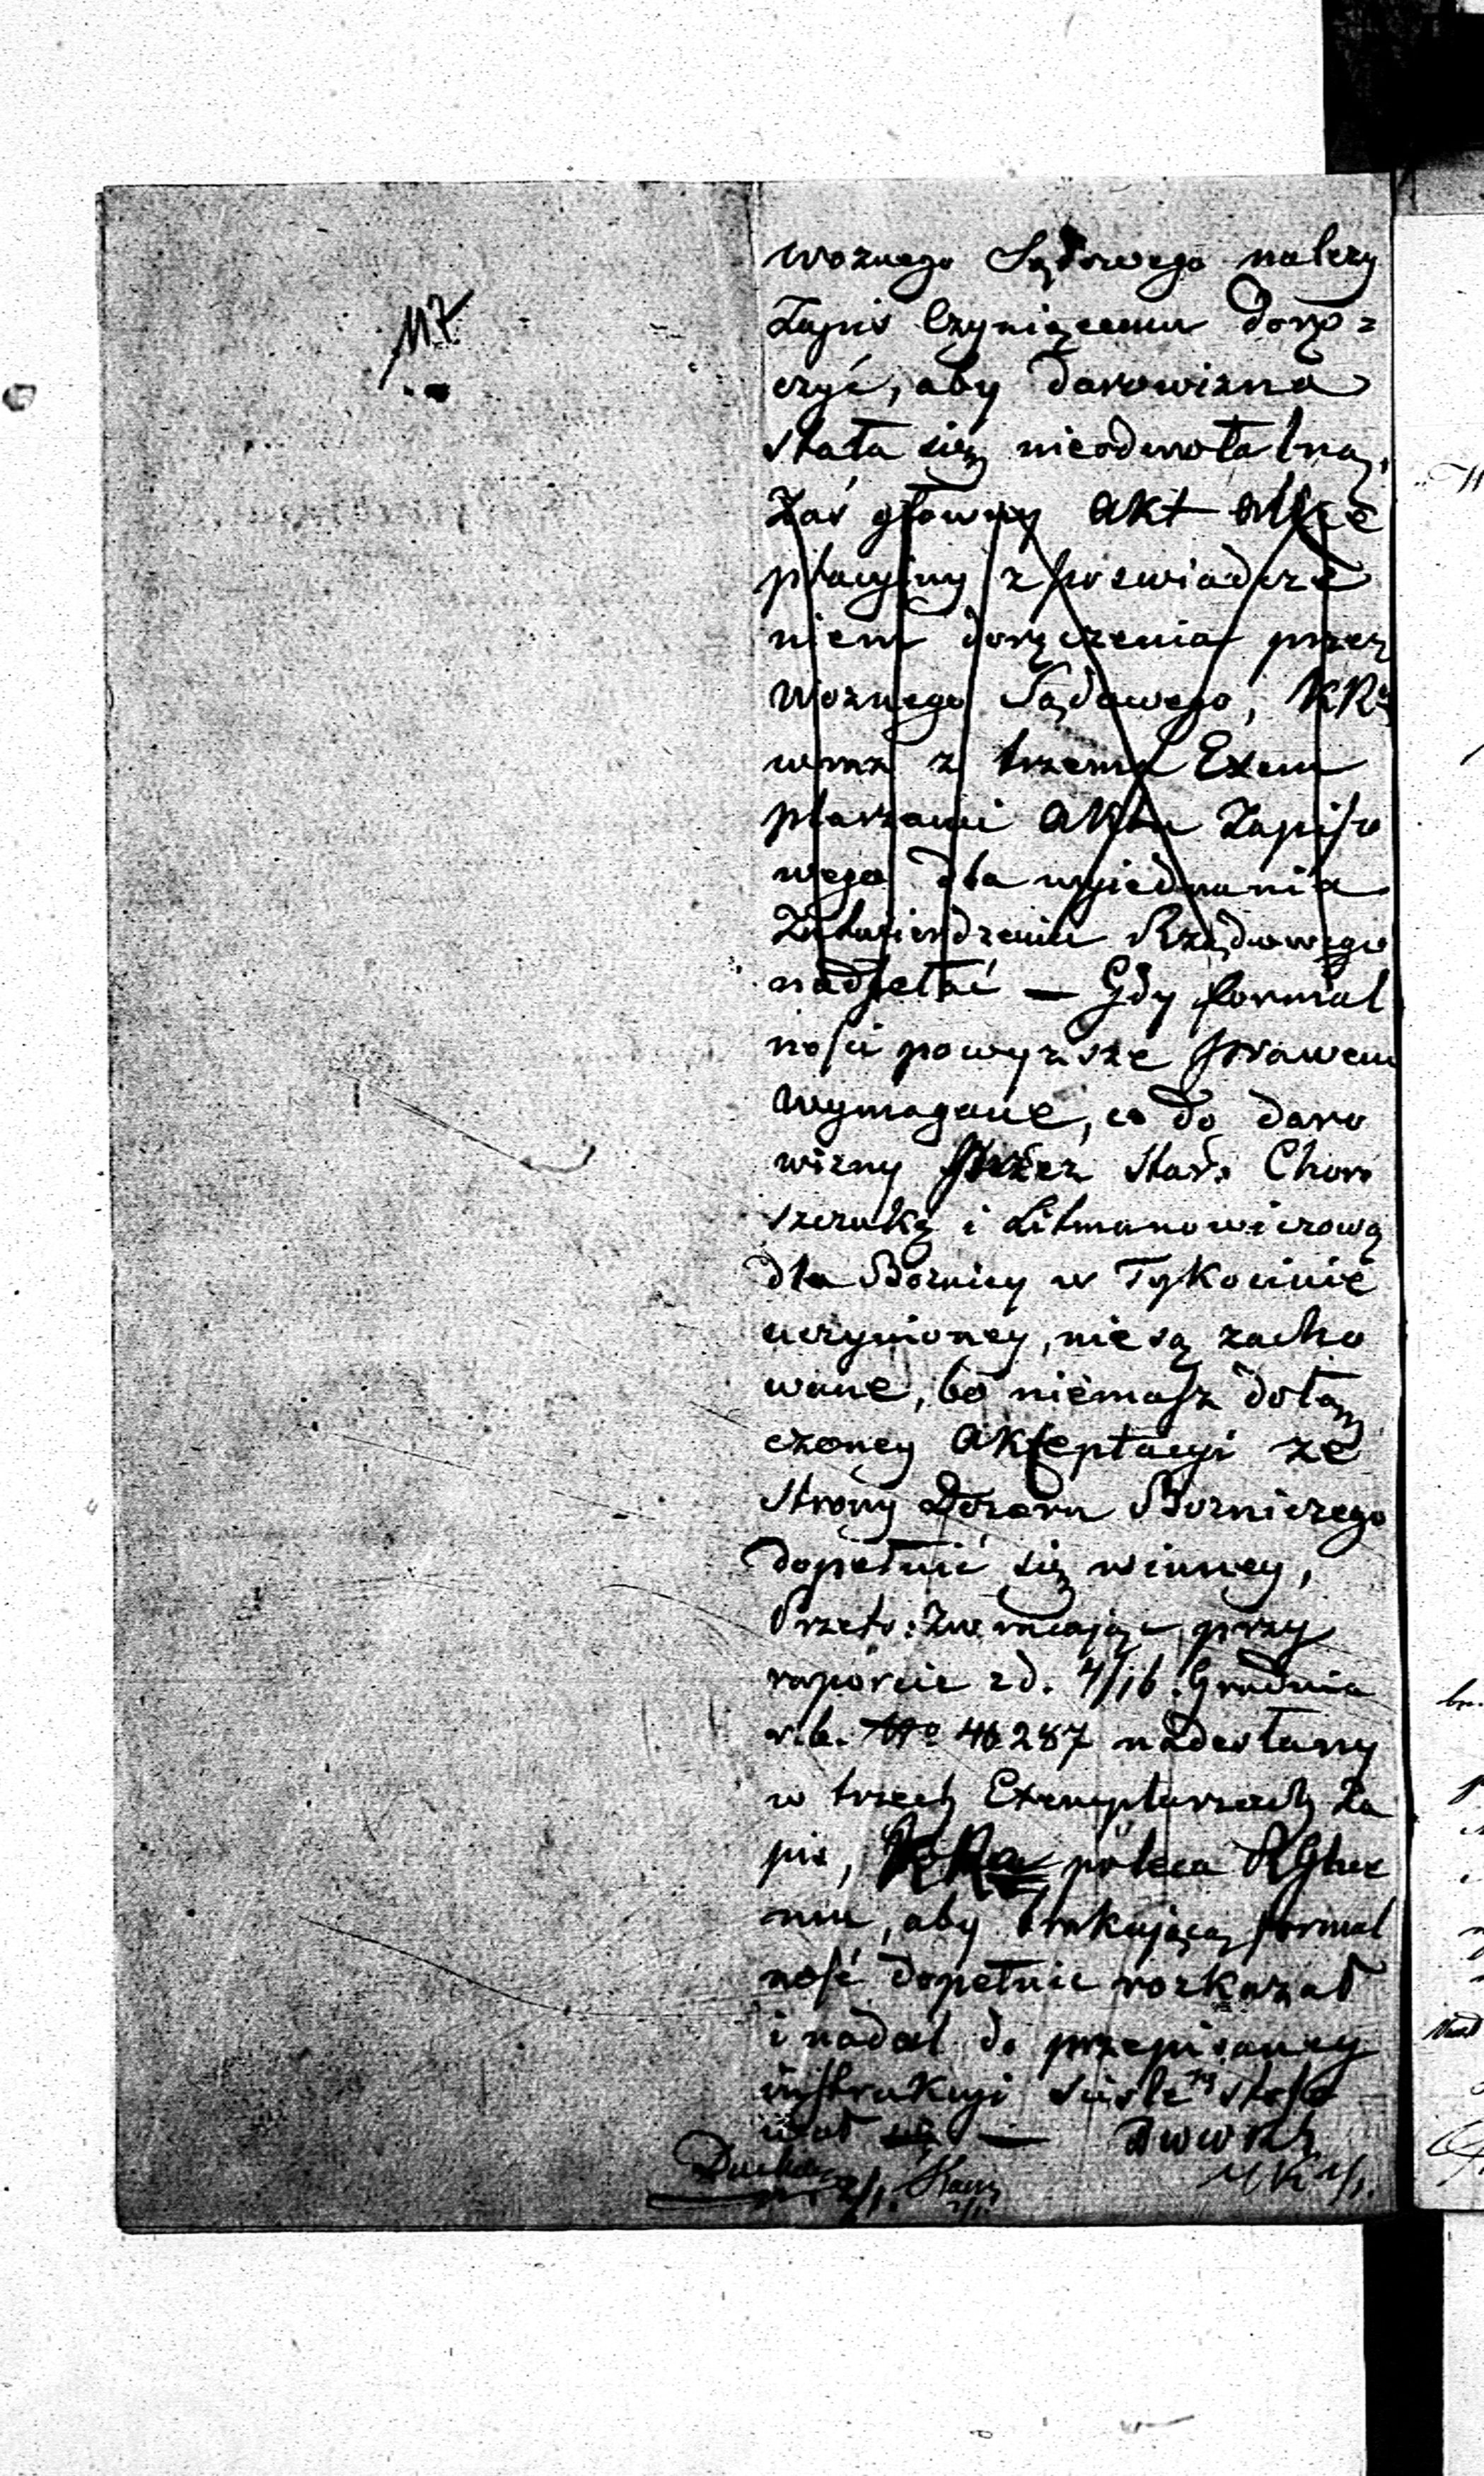 117.
woznego Sądowego należy
Zapis Czyniącemu dorę=
czyć, aby darowizna
stała się nieodwołalną.
Zaś główny akt akce
ptacyiny z poswiadcze
niem doręczenia przez
Woznego Sądowego, KR
wraz z trzema Exem
plarzami aktu Zapiso
wego dla wyiednania
Zatwierdzenia Rządowego
nadesłać — Gdy formal
ności powyższe prawem
wymagane, co do daro
wizny przez Star. Choro
szczuką i Litmanowiczową
dla Bożnicy w Tykocinie
uczynioney, nie są zacho
wane, bo niemasz dołą
czoney akceptacyi ze
strony Dozoru Bozniczego
dopełnić się winney,
Przeto: Zwracając przy
raporcie z d. 4/16 Grudnia
r. b. No 46287 nadesłany
w trzech Exemplarzach Za
pis, poleca RGber
niu, aby brakującą formal
ność dopełnić rozkazał
i nadal do przepisaney
instrukcyi ściśley stoso
wał się —